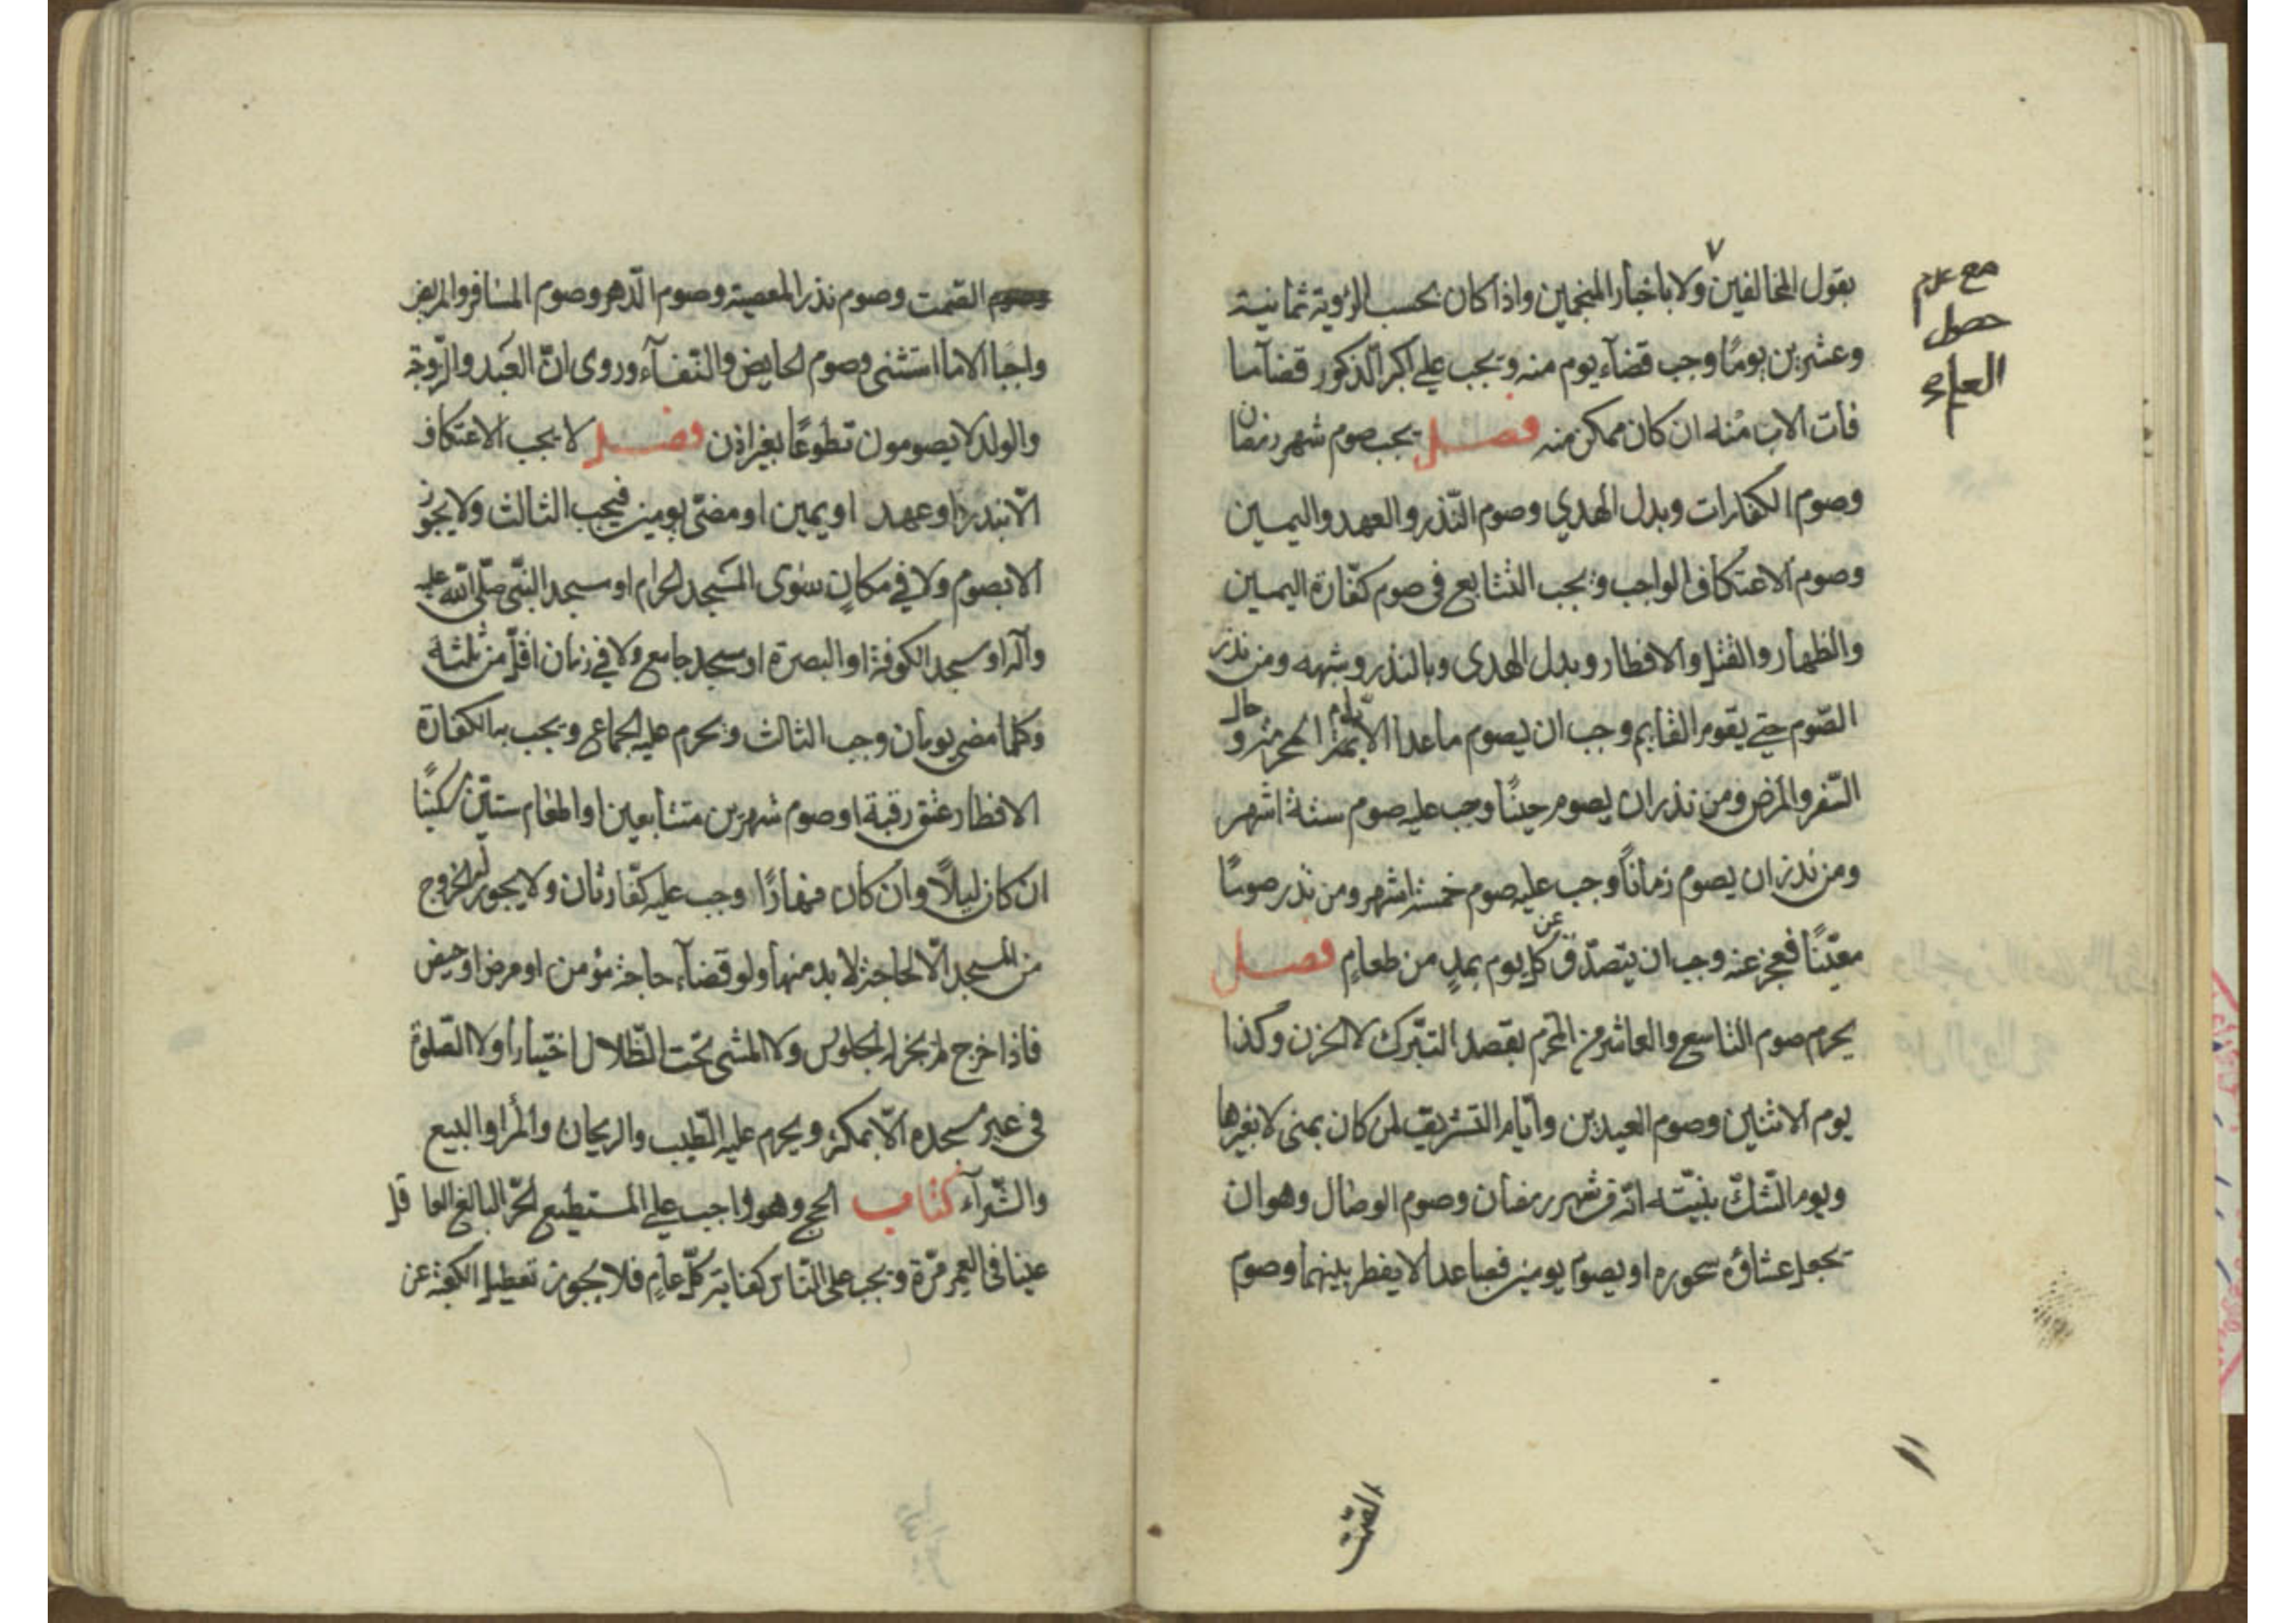 بقول المخالفين ولا باخبار المنجمين واذا كان بحسب الرؤية ثمانية
مع عدم
حصول
العلم
وعشرين يومًا وجب قضاء يوم منه ويجب على اكبر الذكور قضآء ما
فات الاب منه ان كان تمكن منه فصل يجب صوم شهر رمضان
وصوم الكفارات وبدل الهدي وصوم النّذر والعهد واليمين
وصوم الاعتكاف الواجب ويجب التتابع فى صوم كفّارة اليمين
والظهار والقتل والافطار وبدل الهدى وبالنذر وشبهه ومن نذر
الصّوم حتى يقوم القايم وجب ان يصوم ما عدا الايّام المحرمة و حال
السّفر والمرض ومن نذر ان يصوم حينًا وجب عليه صوم ستة اشهر
ومن نذر ان يصوم زمانًا وجب عليه صوم خمسة اشهر ومن نذر صومًا
معيّنًا فعجز عنه وجب ان يتصدّق عن كل يوم بمدٍ من طعامٍ فصل
يحرم صوم التاسع والعاشر من المحرم بقصد التبّرك لا الحزن وكذا
يوم الاثنين وصوم العيدين وأيّام التشريق لمن كان بمنى لا بغيرها
ويوم الشّك بنيّته انّه من شهر رمضان وصوم الوصال وهو ان
يجعل عشاؤه سحوره او يصوم يومين فصاعدا لا يفطر بينهما وصوم
الصّمت
الصّمت وصوم نذر المعصية وصوم الدّهر وصوم المسافر والمريض
واجبا الا ما استثنى وصوم الحايض والنّفسآء وروى انّ العبد والزّوجة
والولد لا يصومون تطوعًا بغير اذن فصل لا يجب الاعتكاف
الّا بنذر او عهد او يمين او مضىّ يومين فيجب الثالث ولا يجوز
الا بصوم ولا في مكانٍ سوى المسجد الحرام او مسجد النبّى صلّى الله عليه
وآله او مسجد الكوفة او البصرة او مسجد جامع ولا في زمان اقلّ من ثلثة
وكلما مضى يومان وجب الثالث ويحرم عليه الجماع ويجب به الكفارة
الافطار عتق رقبة او صوم شهرين متتابعين او اطعام ستّين مسكينًا
ان كان ليلًا وان كان نهارًا وجب عليه كفّارتان ولا يجوز له الخروج
من المسجد الّا لحاجة لا بد منها ولو قضآء حاجة مؤمن او مرض او حيض
فاذا خرج لم يجز له الجلوس ولا المشى تحت الظّلال اختيارا ولا الصّلوة
فى غير مسجده الّا بمكة ويحرم عليه الطّيب والريحان والمرا والبيع
والشّرآء كتاب الحج وهو واجب على المستطيع الحرّ البالغ العاقل
عينا فى العمر مرّة ويجب على النّاس كفاية كلّ عامٍ فلا يجوز تعطيل الكعبة عن